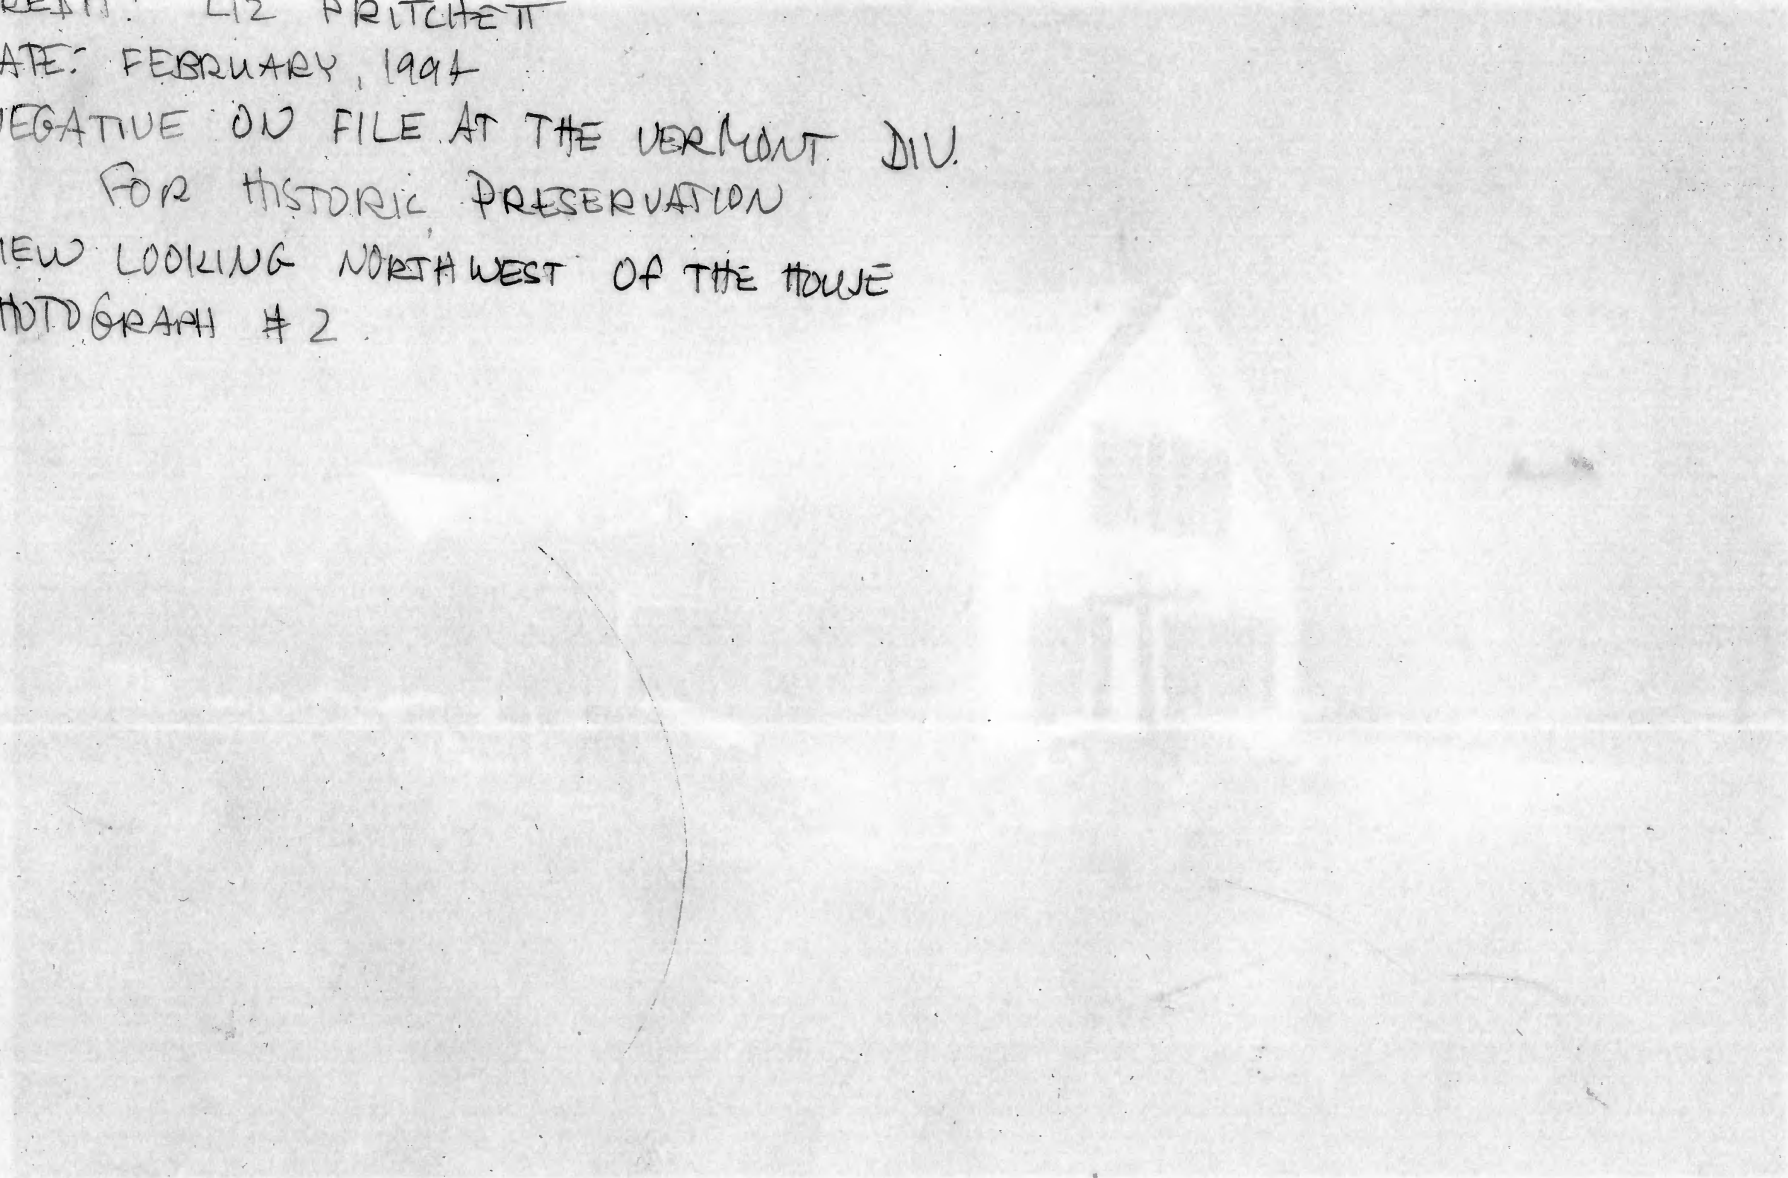 REDIT: LIZ PRITCHETT
ATE: FEBRUARY, 1994
NEGATIVE ON FILE AT THE VERMONT DIV.
FOR HISTORIC PRESERVATION
IEW LOOKING NORTHWEST OF THE HOUSE
HOTOGRAPH #2